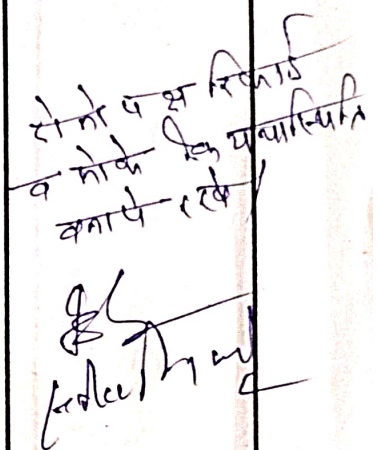 दोनो पक्ष रिकार्ड
व मौके कि यथास्थिति
बनाये रखे